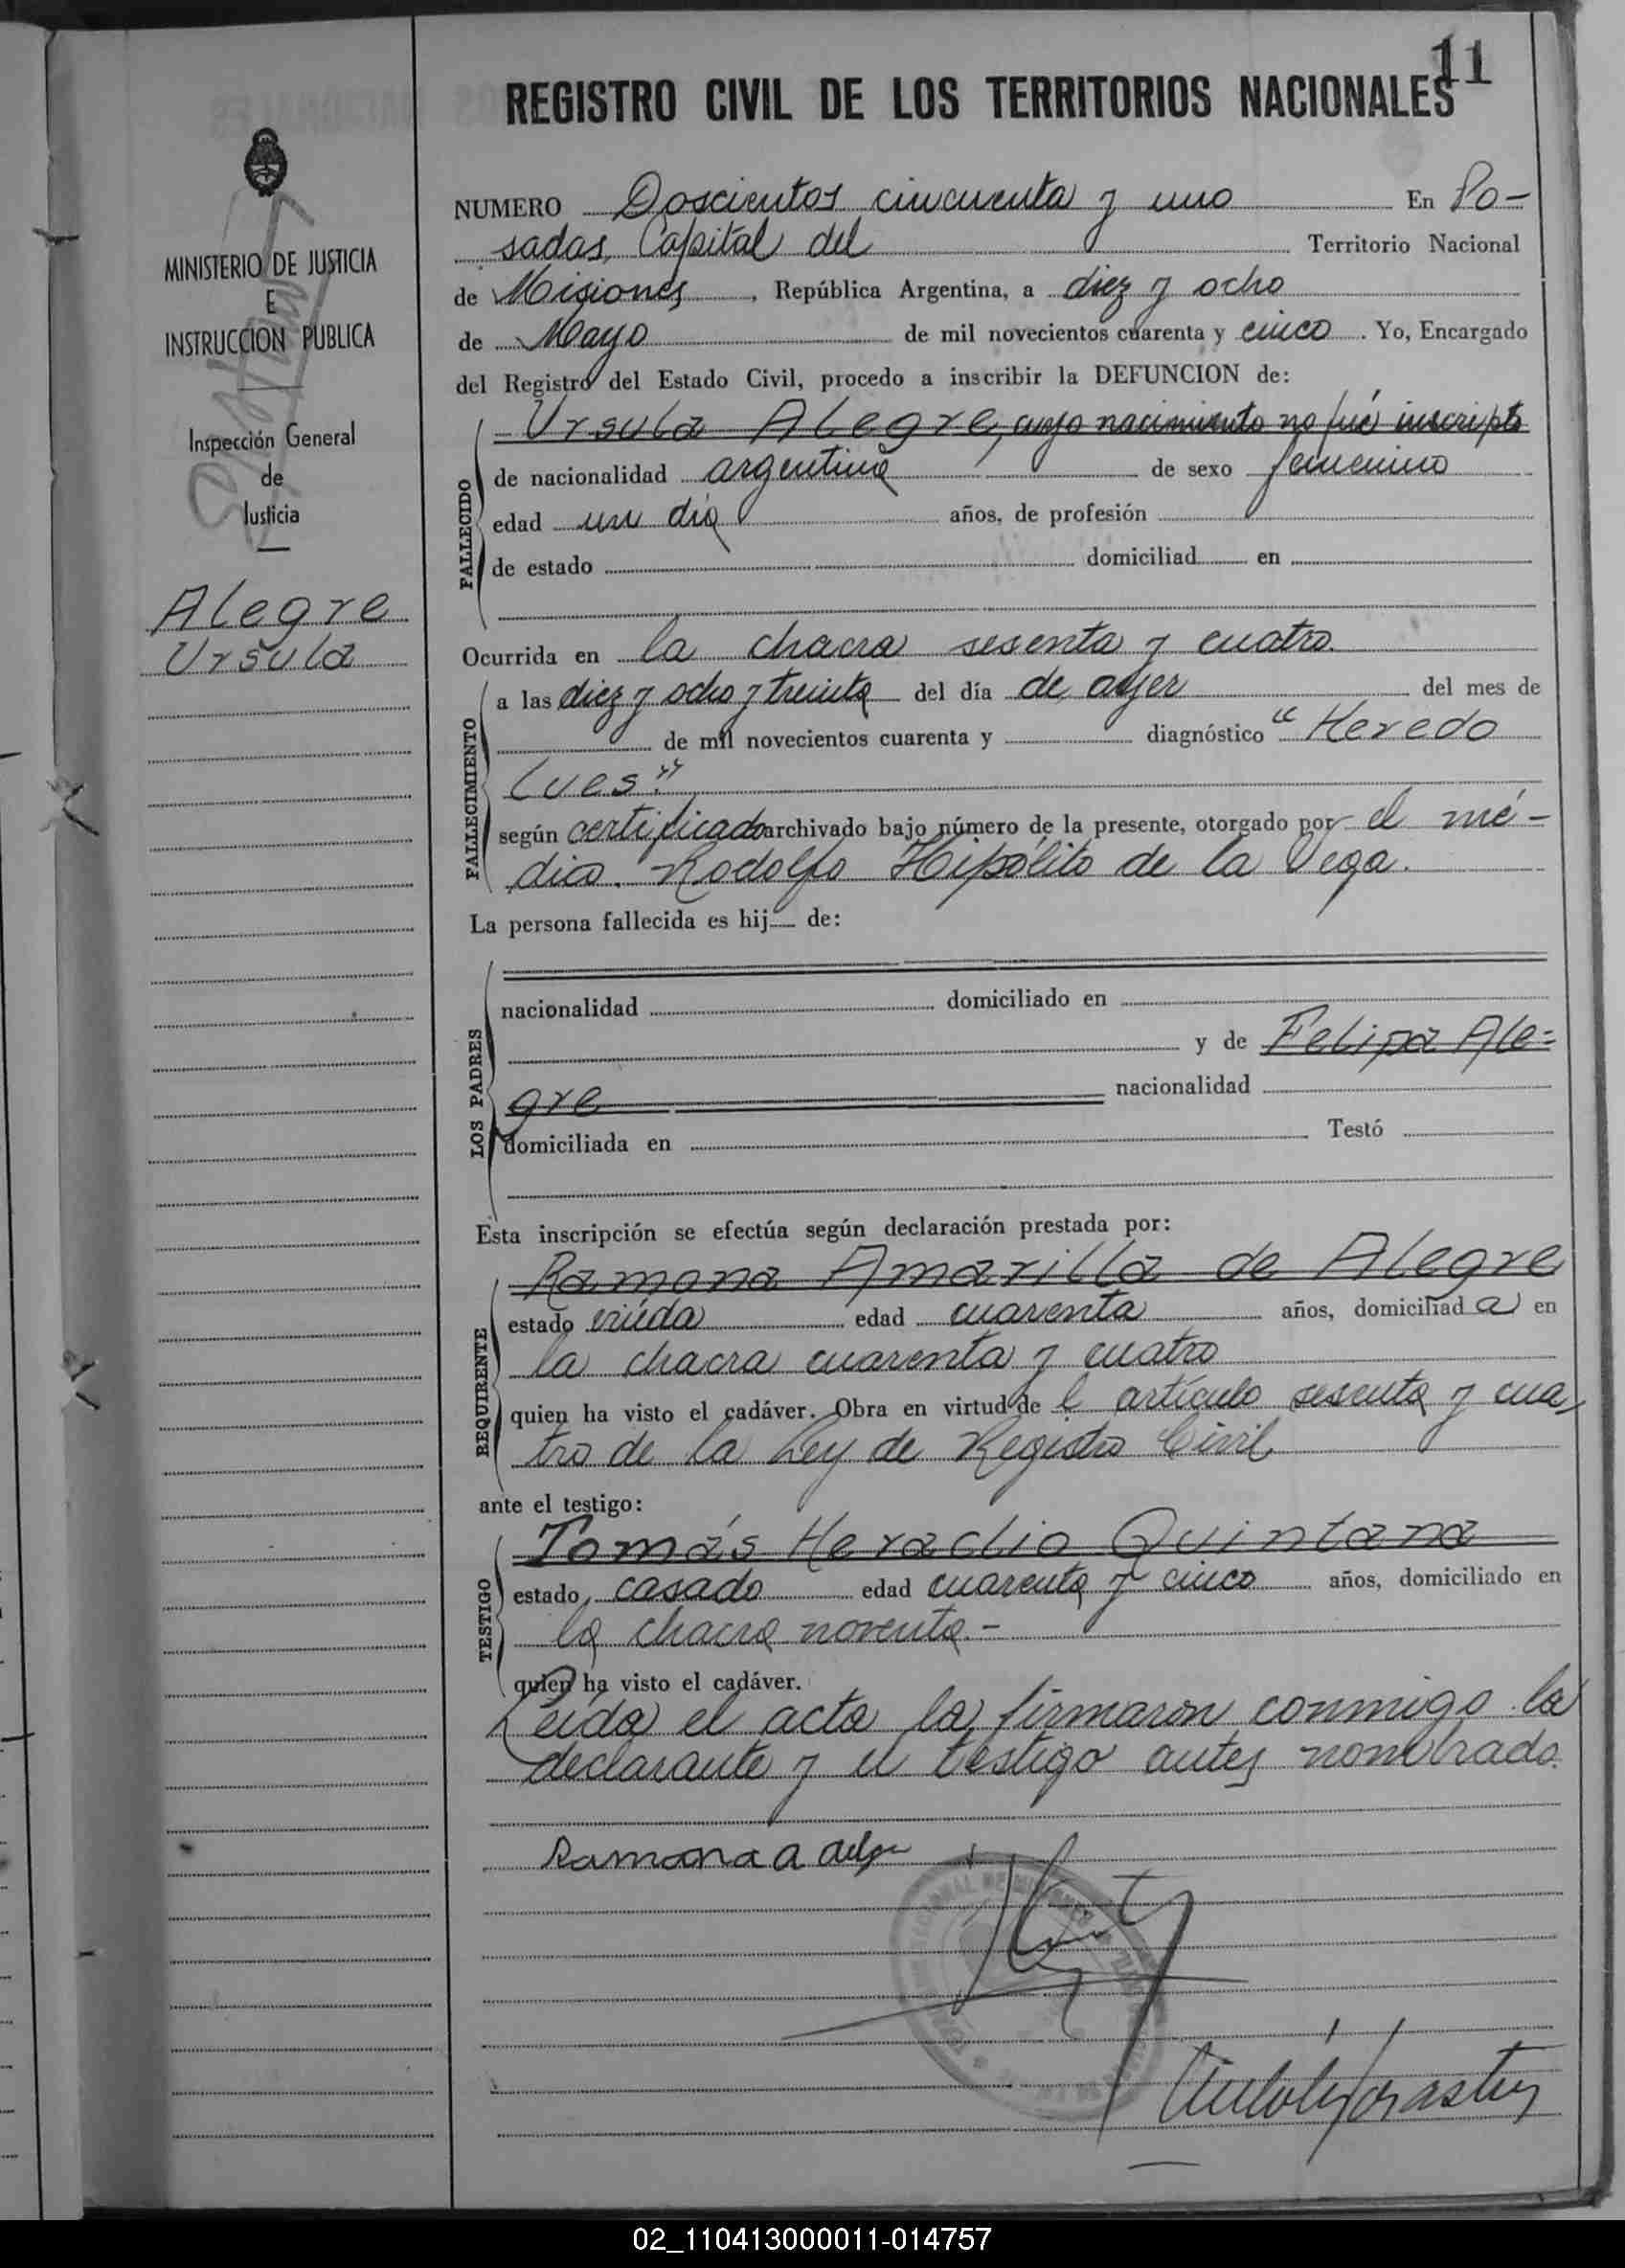 11
REGISTRO CIVIL DE LOS TERRITORIOS NACIONALES
MINISTERIO DE JUSTICIA
E
INSTRUCCION PUBLICA
Inspección General
de
Justicia
Alegre
Ursula
NUMERO Doscientos cincuenta y uno En Po-
sadas, Capital del Territorio Nacional
de Misiones, República Argentina, a diez y ocho
de Mayo de mil novecientos cuarenta y cinco. Yo, Encargado
del Registro del Estado Civil, procedo a inscribir la DEFUNCION de:
FALLECIDO
Ursula Alegre, cuyo nacimiento no fué inscripto
de nacionalidad argentina de sexo femenino
edad un día años, de profesión
de estado domiciliad en
Ocurrida en la chacra sesenta y cuatro.
FALLECIMIENTO
a las diez y ocho y treinta del día de ayer del mes de
de mil novecientos cuarenta y diagnóstico "Heredo
Lues"
según certificado archivado bajo número de la presente, otorgado por el mé-
dico. Rodolfo Hipólito de la Vega.
La persona fallecida es hij de:
LOS PADRES
nacionalidad domiciliado en
y de Felipa Ale=
gre nacionalidad
domiciliada en Testó
Esta inscripción se efectúa según declaración prestada por:
REQUIRENTE
Ramona Amarilla de Alegre
estado viuda edad cuarenta años, domiciliada en
la chacra cuarenta y cuatro
quien ha visto el cadáver. Obra en virtud de l artículo sesenta y cua
tro de la Ley de Registro Civil,
ante el testigo:
TESTIGO
Tomás Heraclio Quintana
estado casado edad cuarenta y cinco años, domiciliado en
la chacra noventa.-
quien ha visto el cadáver.
Leída el acta la firmaron conmigo la
declarante y el testigo antes nombrado.
Ramona A
02_110413000011-014757